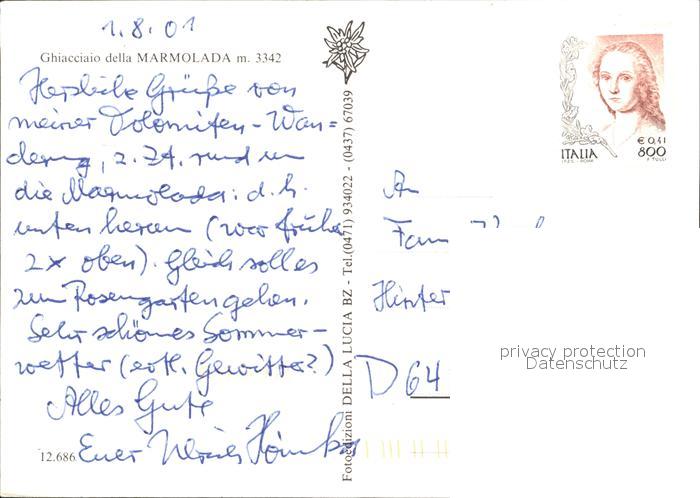 1.8.01
Ghiacciaio della MARMOLADA m. 3342
Herzliche Grüße von
meiner Dolomiten-Wan=
derung, z. Zt. rund um
die Marmolada: d.h.
unten herum (war früher
2x oben). Gleich soll es
zum Rosengarten gehen.
Sehr schönes Sommer-
wetter (evtl. Gewitter?)
Alles Gute
Euer Ulrich
12.686
Fotoedizioni DELLA LUCIA BZ - Tel. (0471) 934022 - (0437) 67039
€ 0,41
ITALIA 800
I.P.Z.S. - ROMA F. TULLI
An
Fam
Hinter
D 64
privacy protection
Datenschutz